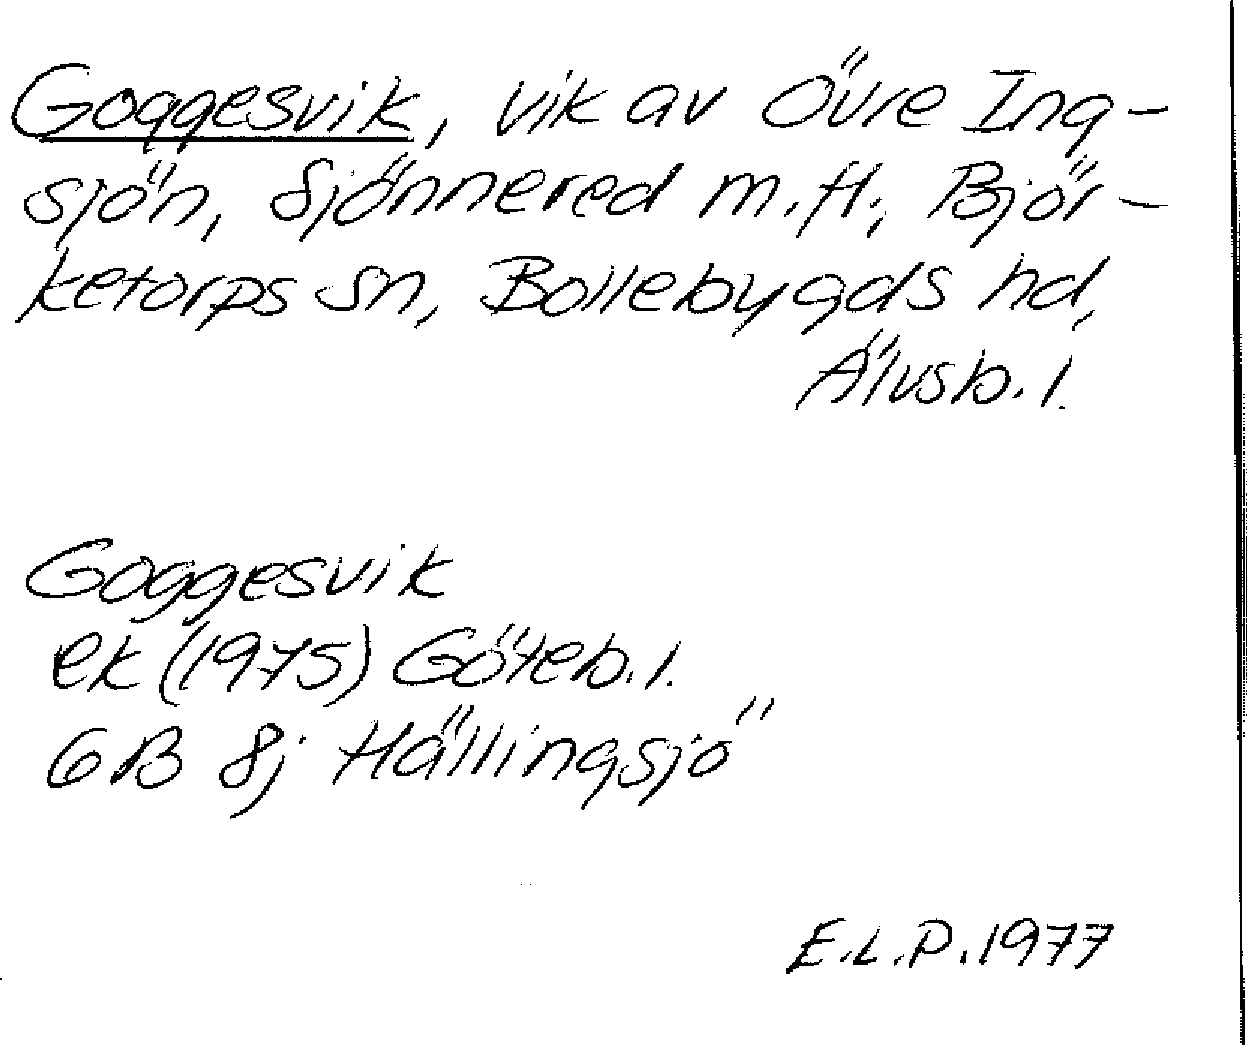 Goggesvik, vik av Övre Ing-
sjön, Sjönnered m.fl., Björ-
ketorps sn, Bollebygds hd,
Älvsb. l.
Goggesvik
ek (1975) Göteb. l.
6B 8j Hällingsjö
E.L.P. 1977